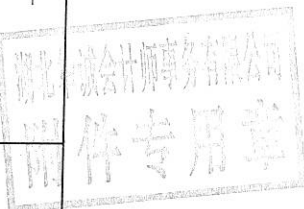 会计师事务有限公司
附件专用章